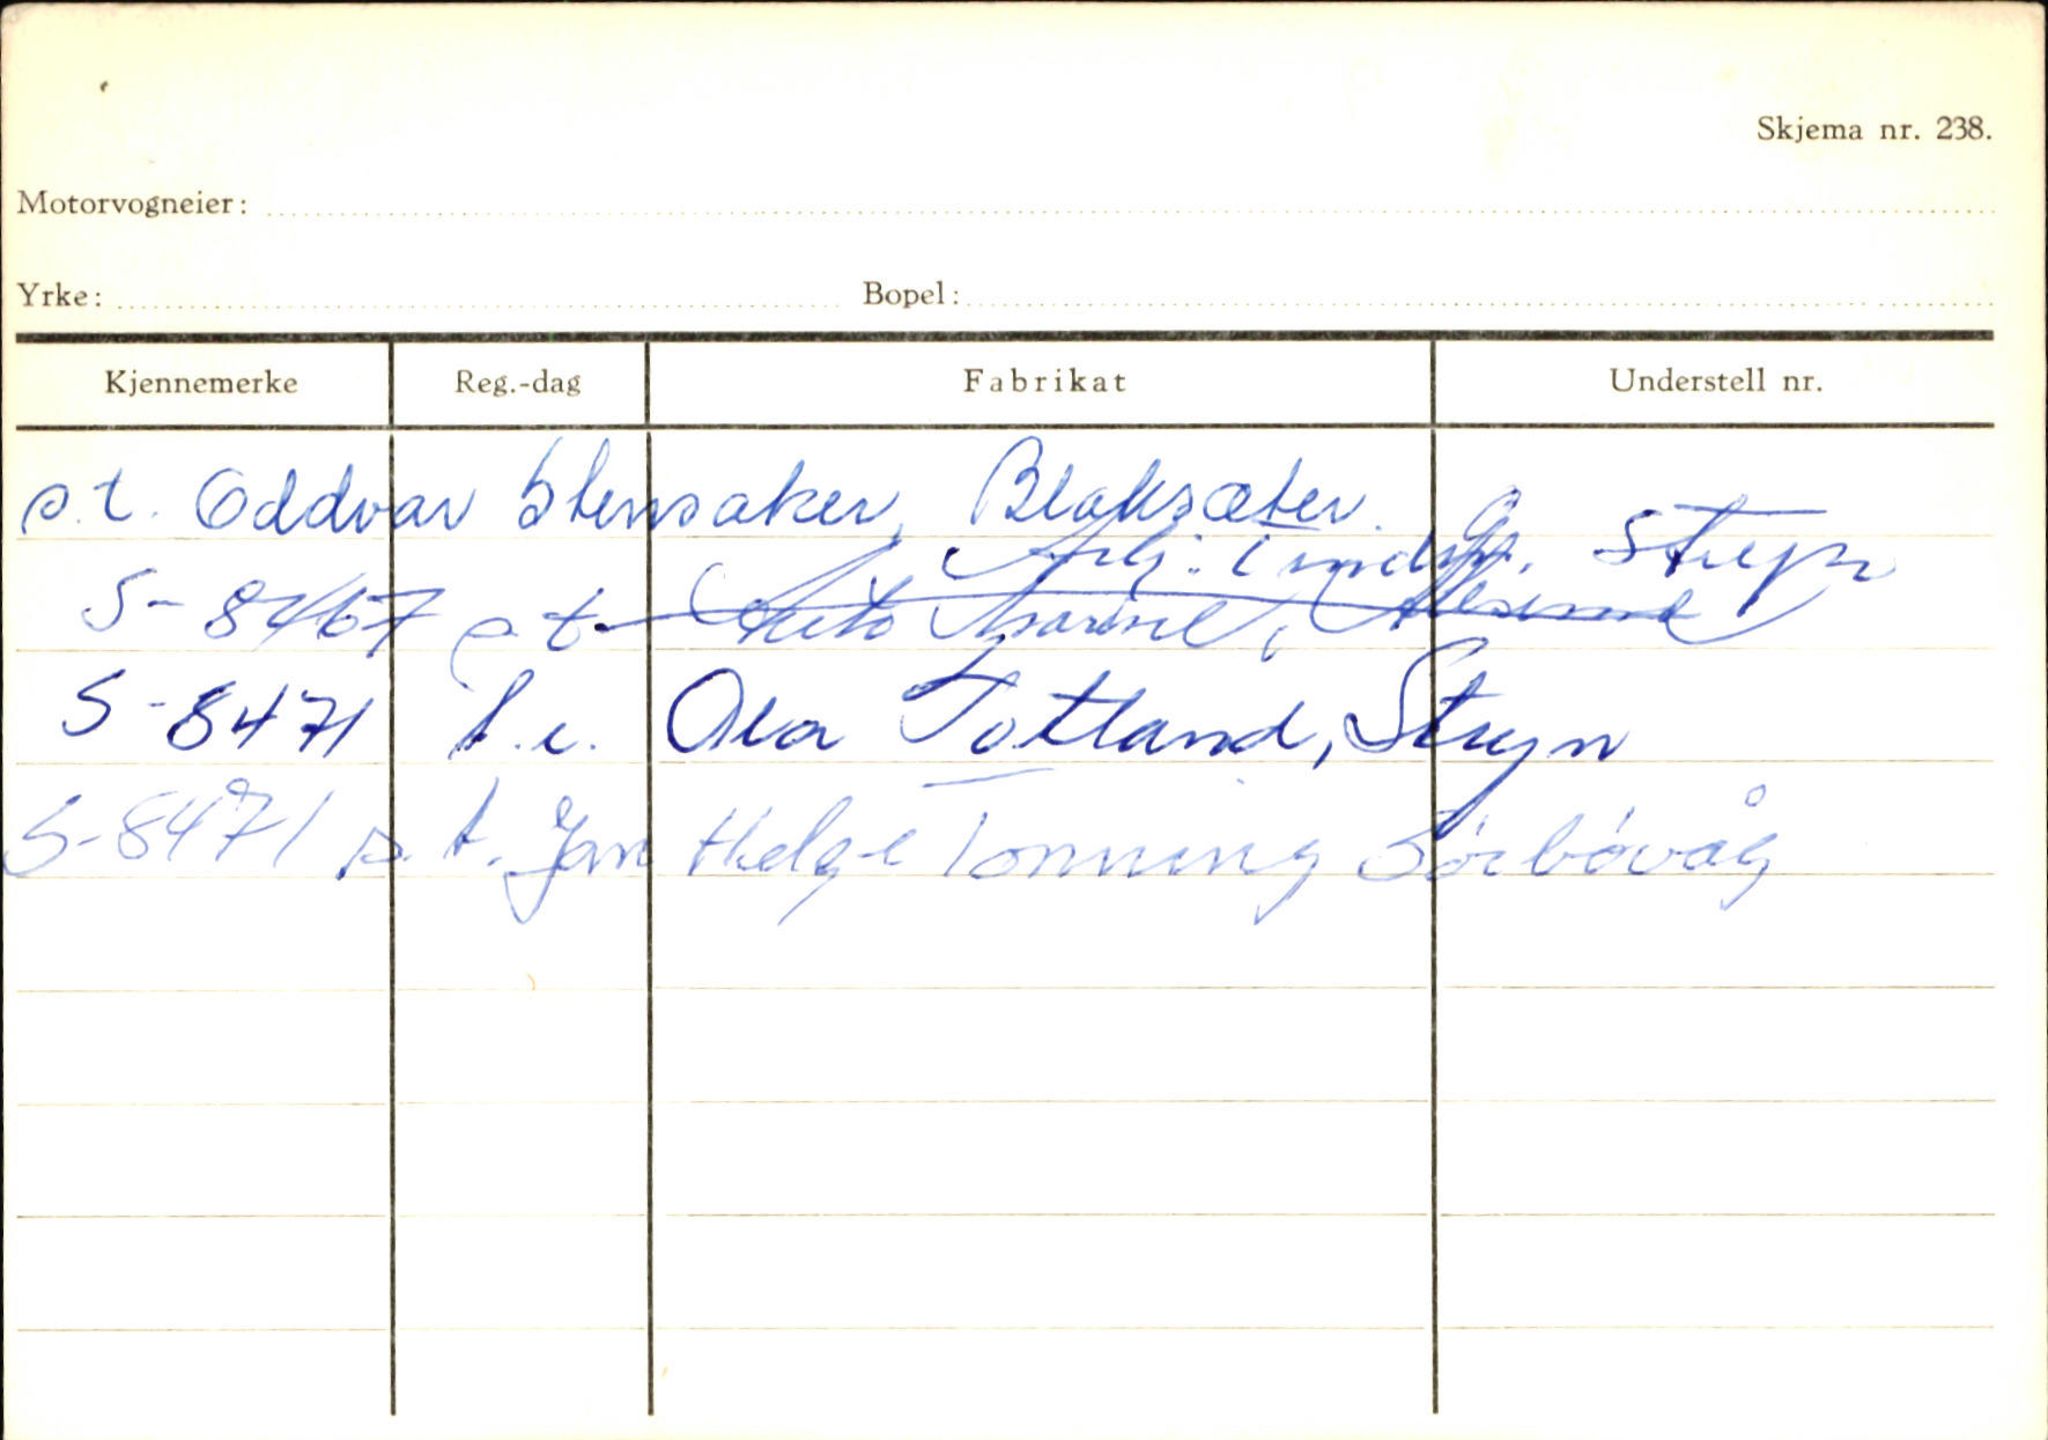 Skjema nr. 238.
Motorvogneier:
Yrke: Bopel:
Kjennemerke Reg.-dag Fabrikat Understell nr.
p.t. Oddvar Stensaker, Blaksæter.
Stryn
S-8467 p.t. Auto Marine,
S-8471 t.e. Ola Totland, Stryn
S-8471 p.t. Jan Helge Tonning Sörbövåg